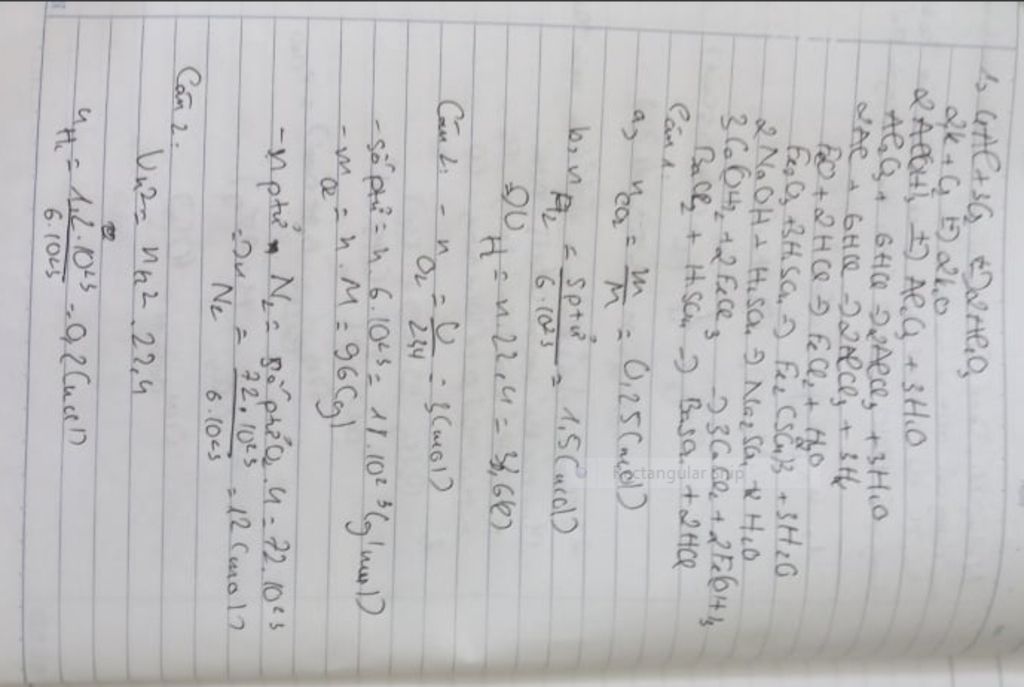 1, 4Al + 3O2 t°→ 2Al2O3
2K + O2 t°→ 2K2O
2Al(OH)3 t°→ Al2O3 + 3H2O
Al2O3 + 6HCl → 2AlCl3 + 3H2O
2Al + 6HCl → 2AlCl3 + 3H2
FeO + 2HCl → FeCl2 + H2O
Fe2O3 + 3H2SO4 → Fe2(SO4)3 + 3H2O
2NaOH + H2SO4 → Na2SO4 + H2O
3Ca(OH)2 + 2FeCl3 → 3CaCl2 + 2Fe(OH)3
BaCl2 + H2SO4 → BaSO4 + 2HCl
Câu 1.
a, n = m/M = 0,25 (mol)
b, n H2 = số ptử / 6.10^23 = 1,5 (mol)
=> V H = n.22,4 = 33,6 (l)
Câu 2. - n O2 = V/22,4 = 3 (mol)
- số ptử = n.6.10^23 = 18.10^23 (g/mol)
- m O2 = n.M = 96 (g)
- n ptử N2 = số ptử O2.4 = 72.10^23
=> n N2 = 72.10^23 / 6.10^23 = 12 (mol)
Câu 2.
V H2 = n H2 . 22,4
n H2 = 1,2.10^23 / 6.10^23 = 0,2 (mol)
Rectangular Snip